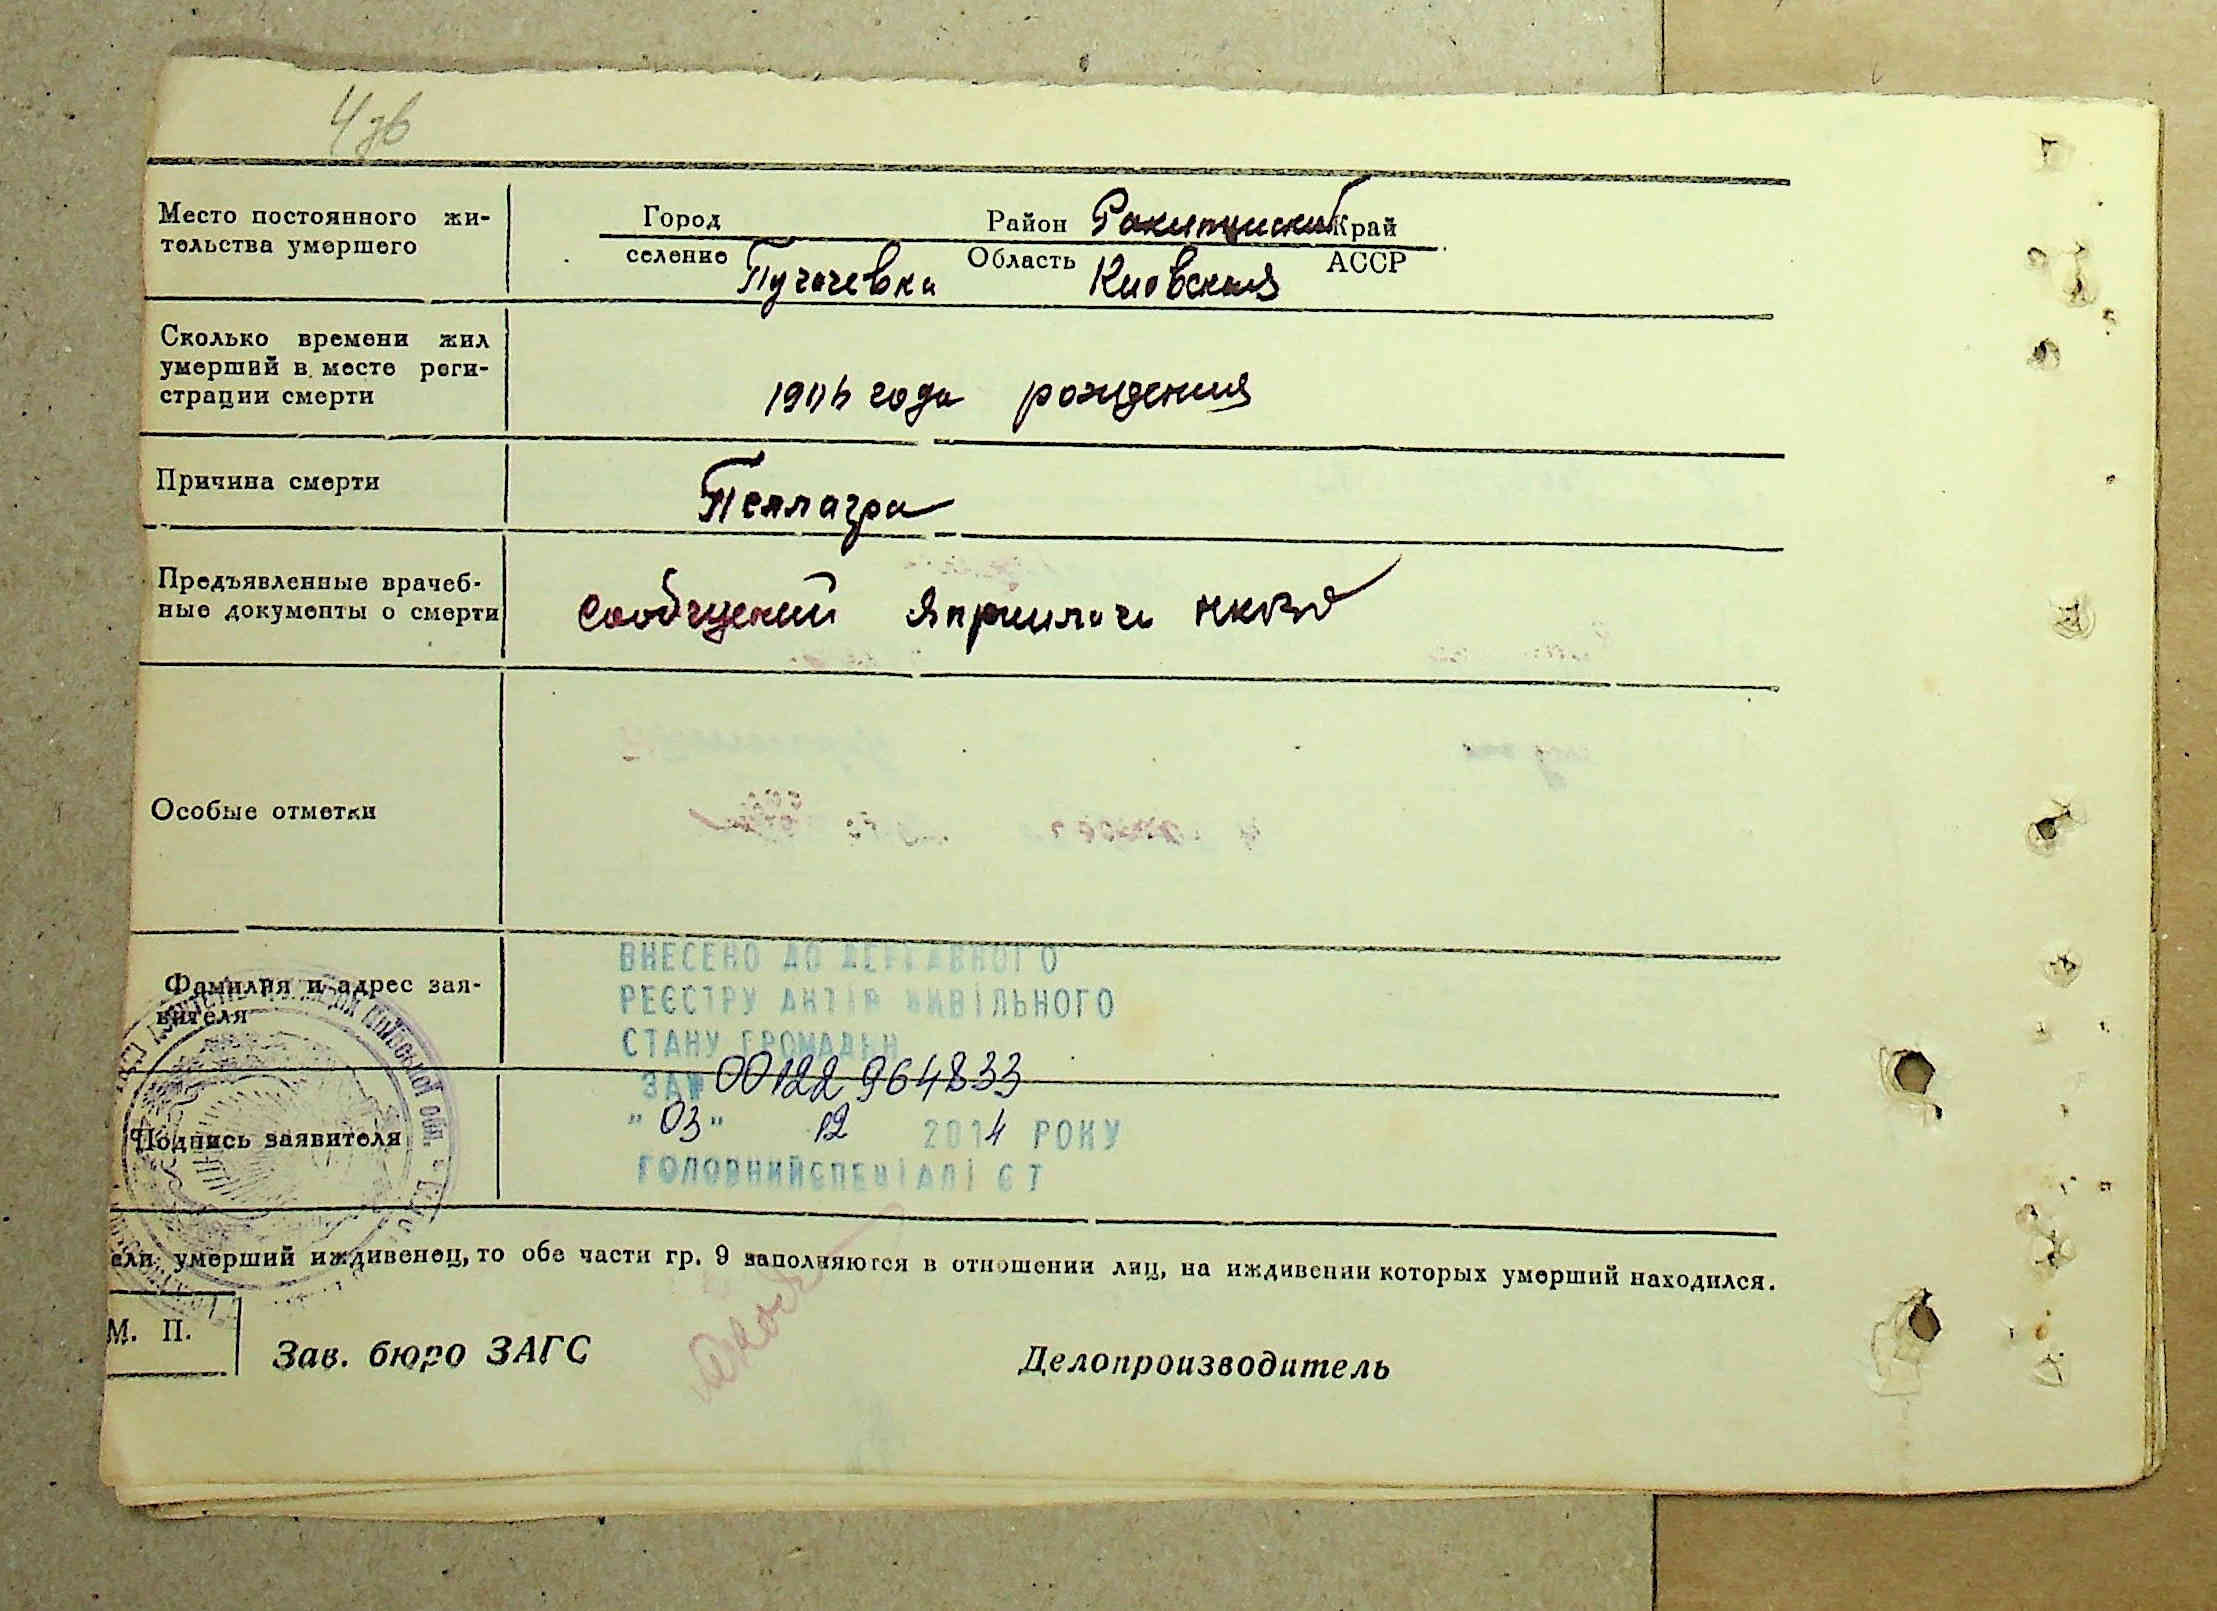 4зв
Место постоянного жи-
тельства умершего
Город
селение
Пугачевка
Район Ракитнский Край
Область Киевская АССР
Сколько времени жил
умерший в месте реги-
страции смерти
1906 года рождения
Причина смерти
Пеллагра
Предъявленные врачеб-
ные документы о смерти
сообщений НКВД
Особые отметки
Фамилия и адрес зая-
вителя
ВНЕСЕНО ДО ДЕРЖАВНОГО
РЕЄСТРУ АКТІВ ЦИВІЛЬНОГО
СТАНУ ГРОМАДЯН
ЗА № 00122964833
"03" 12 2014 РОКУ
ГОЛОВНИЙ СПЕЦІАЛІСТ
Подпись заявителя
если умерший иждивенец, то обе части гр. 9 заполняются в отношении лиц, на иждивении которых умерший находился.
М. П.
Зав. бюро ЗАГС
Делопроизводитель